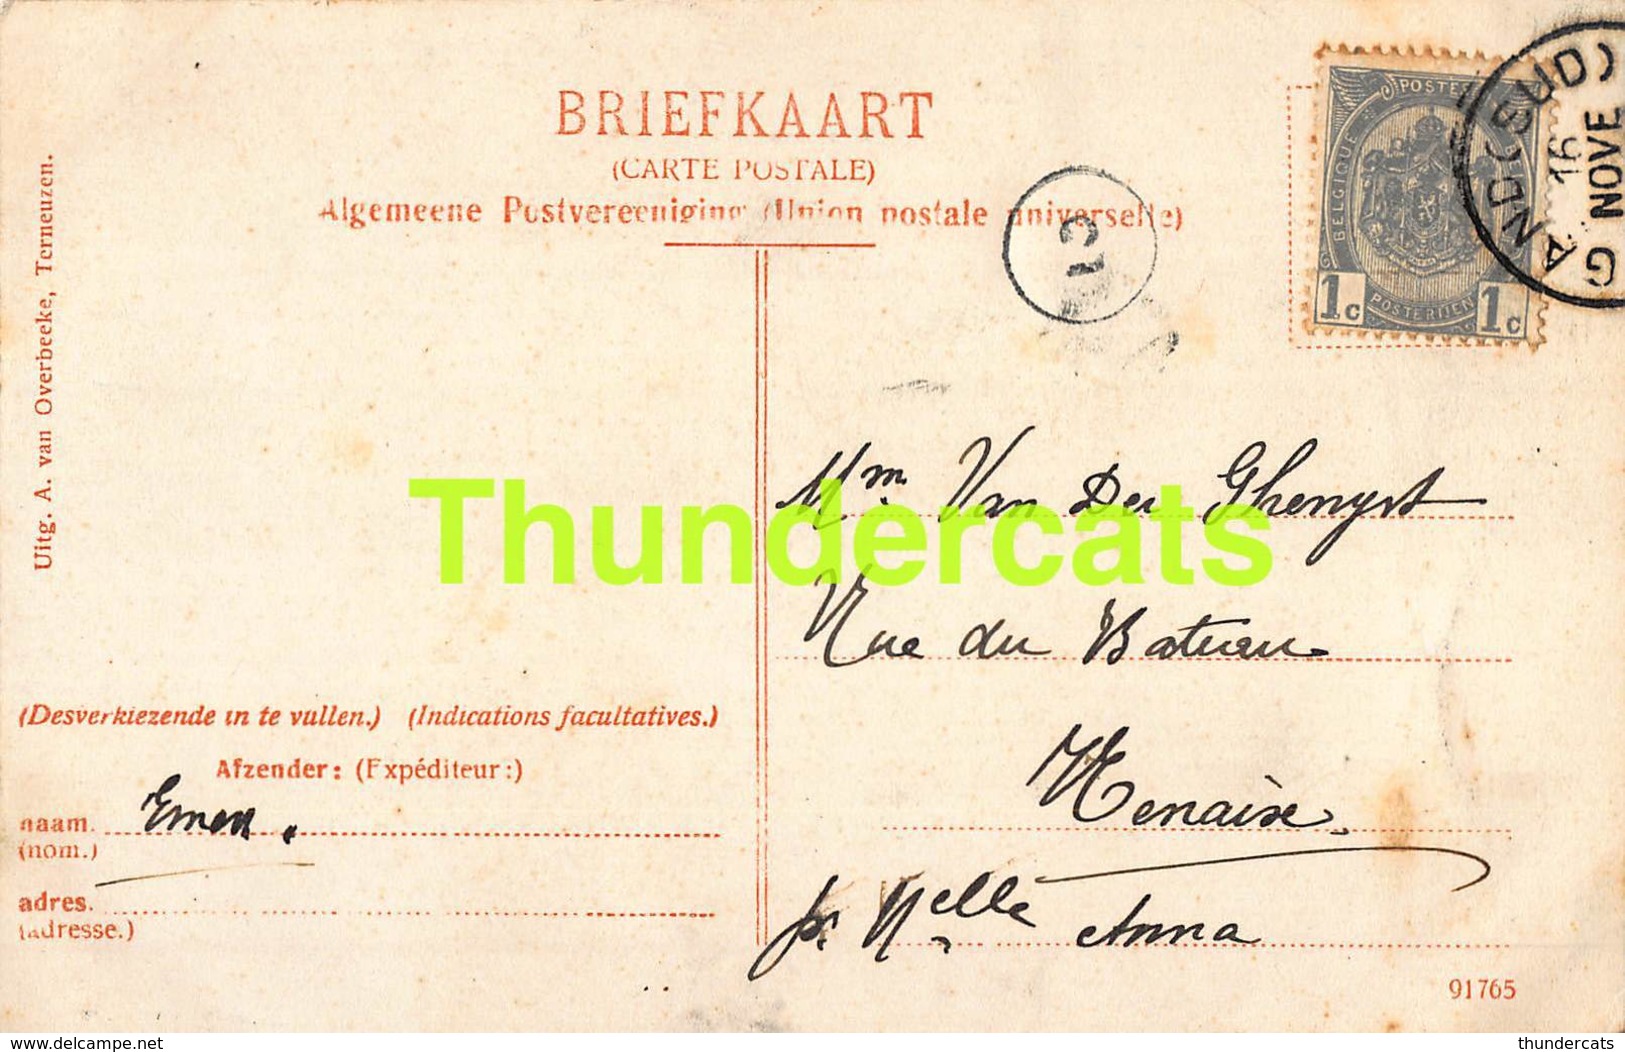 BRIEFKAART
(CARTE POSTALE)
Algemeene Postvereeniging (Union postale universelle)
Uitg. A. van Overbeeke, Terneuzen.
POSTES
BELGIQUE
1c POSTERIJEN 1c
GAND (SUD)
16
NOVE
C1
Thundercats
Mm. Van Der Ghenyst
Rue du Bateau
Renaix
pr. Melle Anna
(Desverkiezende in te vullen.) (Indications facultatives.)
Afzender: (Expéditeur:)
naam.
(nom.)
adres.
(adresse.)
91765
www.delcampe.net
thundercats